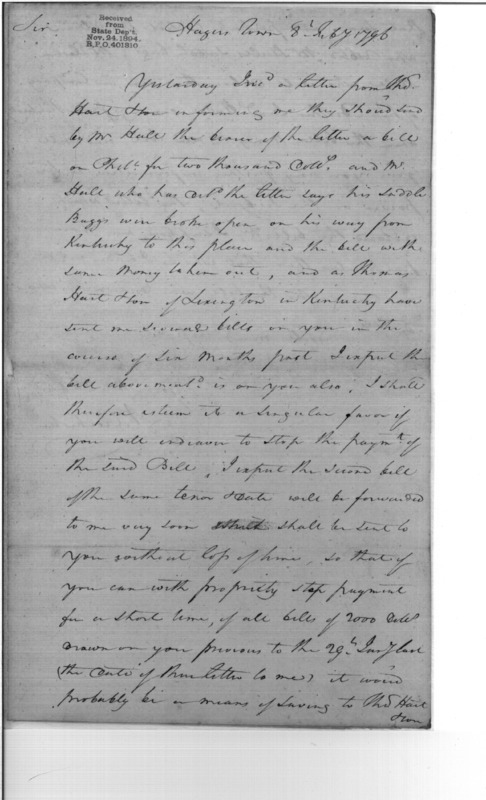 Sir
Received
from
State Dep't.
Nov. 24, 1894.
R.P.O. 401310
Hagers Town 8th Feby 1796
Yesterday I recd a letter from Thos.
Hart & Son informing me they should send
by Mr Hall the bearer of the letter a bill
on Phila. for two thousand Dolls. and Mr.
Hall who has deld. the letter says his Saddle
Baggs were broke open on his way from
Kentucky to this place and the bill with
some money taken out, and as Thomas
Hart & Son of Lexington in Kentucky have
sent me several bills on you in the
course of Six Months past I expect the
bill abovementd. is on you also; I shall
therefore esteem it a singular favor if
you will endeavor to stop the paymt. of
the said Bill, I expect the second bill
of the same tenor & date will be forwarded
to me very soon shall be sent to
you without loss of time, so that if
you can with propriety stop payment
for a short time, of all bills of 2000 Dolls
drawn on you previous to the 29th Jany last
(the date of their letter to me) it would
probably be a means of saving to Thos Hart
& Son